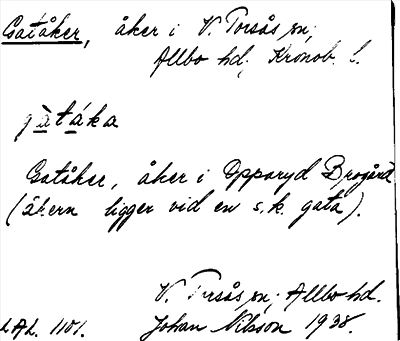 Gatåker, åker i V. Torsås sn,
Allbo hd, Kronob. l.
gàtáka
Gatåker, åker i Opparyd Brogård
(åkern ligger vid en s.k. gata).
V. Torsås sn, Allbo hd.
LAL. 1101. Johan Nilsson 1938.